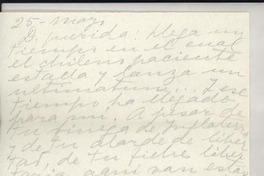 25 - mayo
D. querida: Llega un
tiempo en el cual
el chileno paciente
estalla y lanza un
ultimatum... Ese
tiempo ha llegado
para mí. A pesar de
tu
y de tu alarde de liber
tad, de tu
aquí van estas